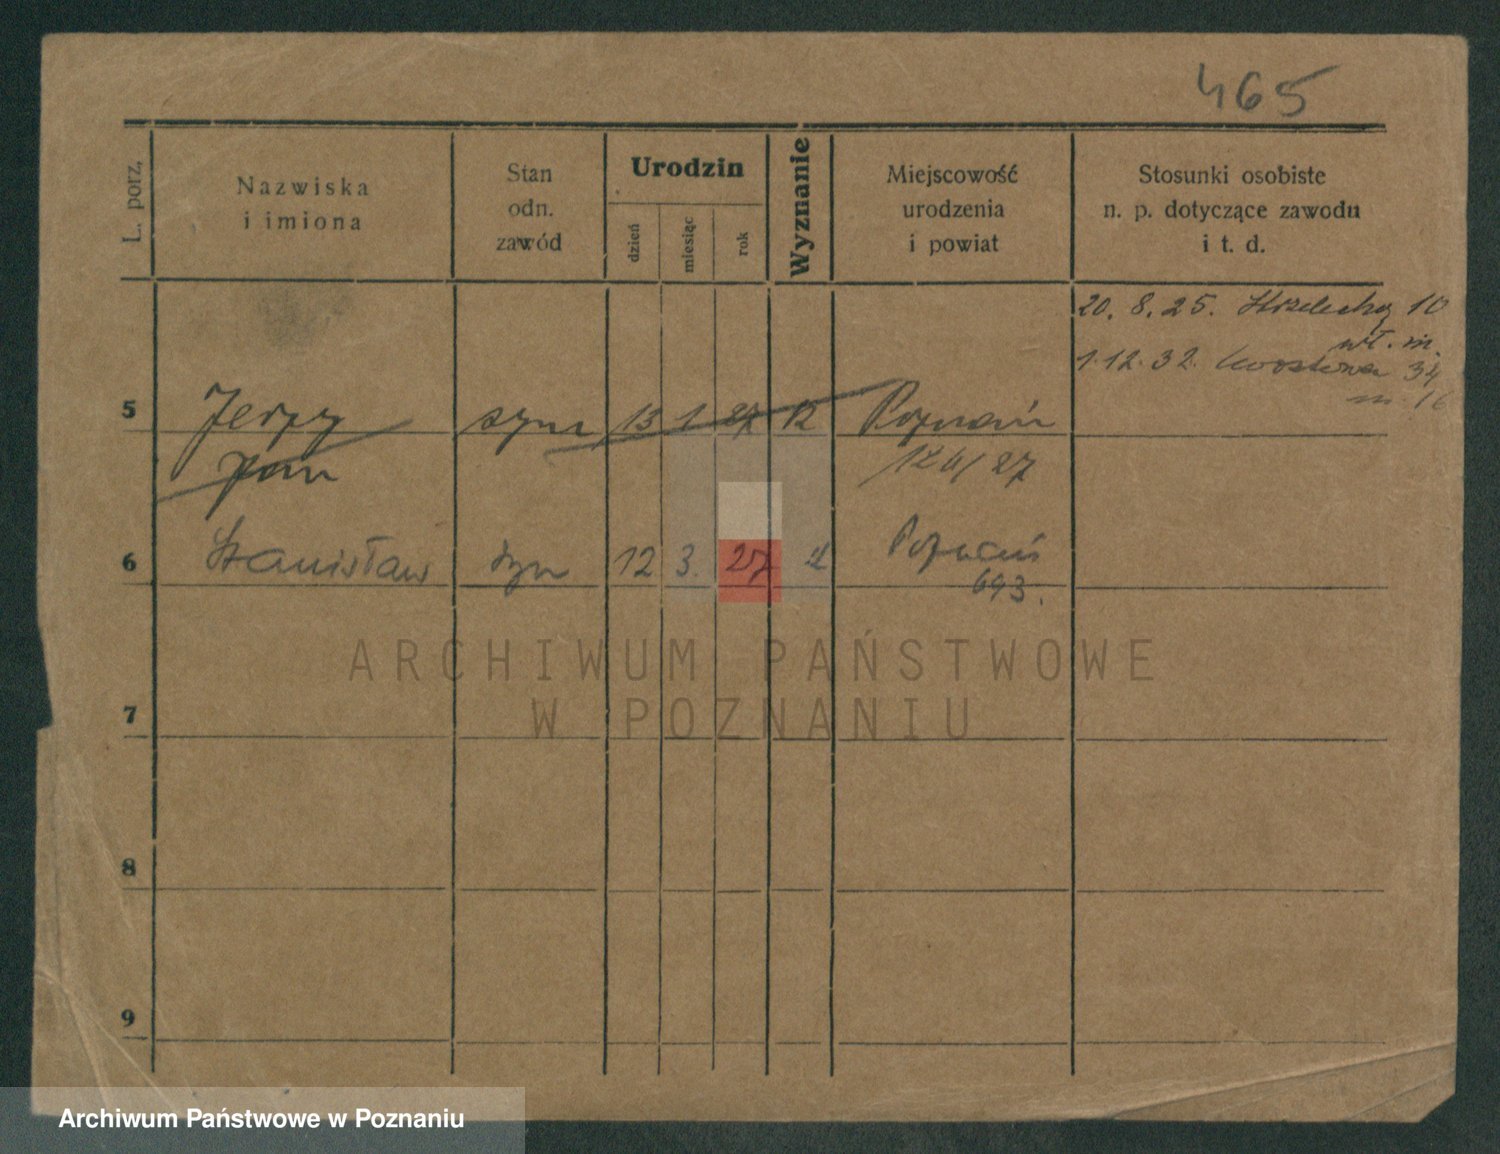 465
L. porz.
Nazwiska
i imiona
Stan
odn.
zawód
Urodzin
dzień
miesiąc
rok
Wyznanie
Miejscowość
urodzenia
i powiat
Stosunki osobiste
n. p. dotyczące zawodu
i t. d.
20. 8. 25. Strzelecka 10
wł. m.
1.12.32. 34
m. 16
5 Jerzy syn 13 1 27 Poznań
Jan 124/27
6 Stanisław syn 12 3. 27 Poznań
693.
7
8
9
ARCHIWUM PAŃSTWOWE
W POZNANIU
Archiwum Państwowe w Poznaniu